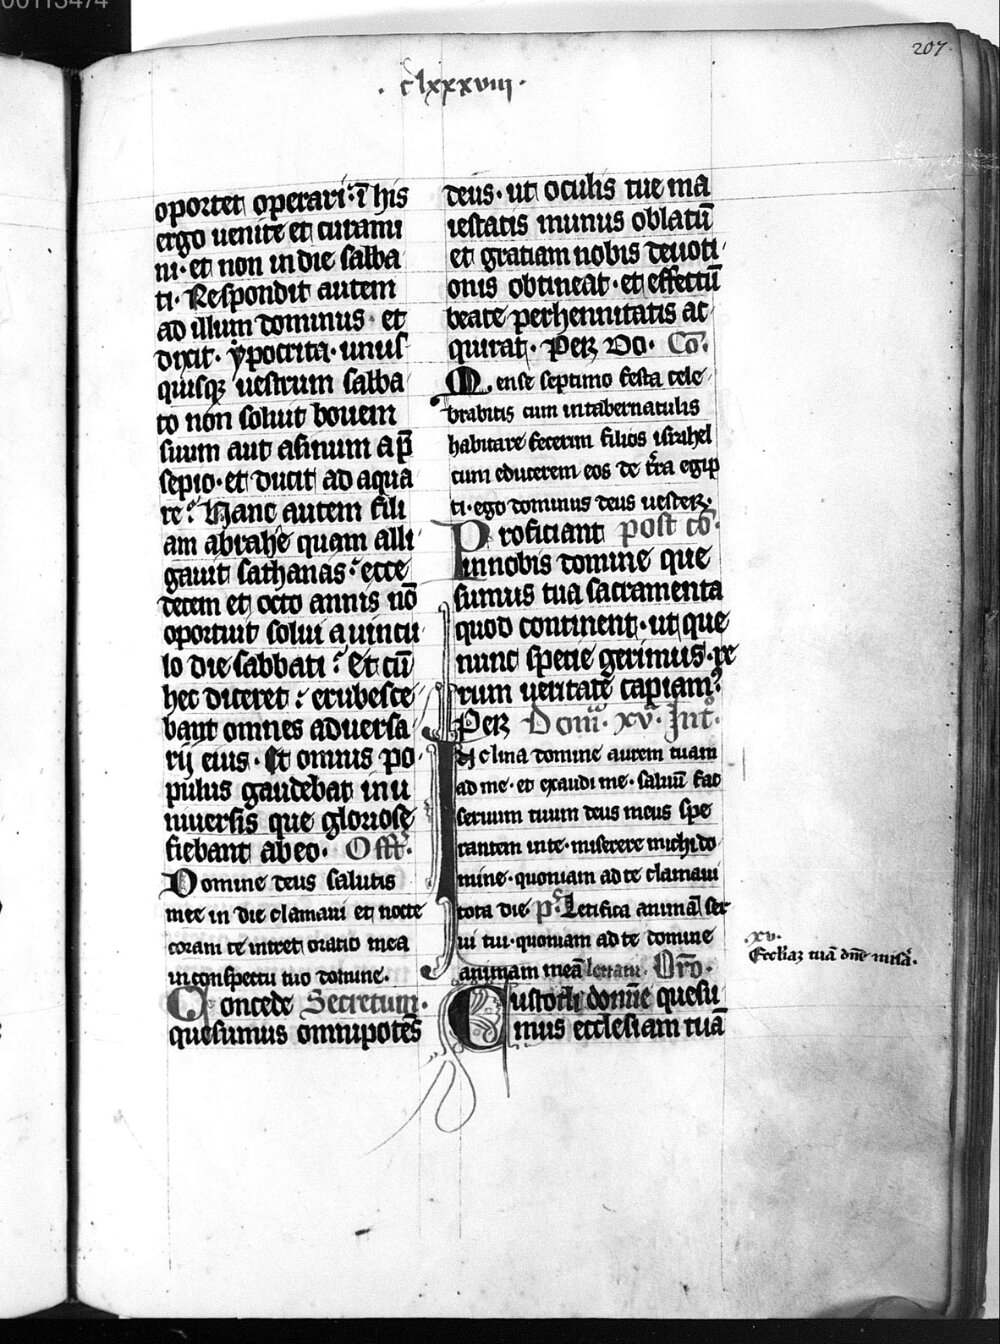 00113474
207
. clxxxviii .
oportet operari · i his
ergo uenite et curami
ni · et non in die sabba
ti · Respondit autem
ad illum dominus · et
dixit · ypocrita · unus
quisqz uestrum sabba
to non soluit bouem
suum aut asinum a p̄
sepio · et ducit ad aqua
re? Hanc autem fili
am abrahe quam alli
gauit sathanas · ecce
decem et octo annis nō
oportuit solui a uincu
lo die sabbati? Et cū
hec diceret · erubesce
bant omnes aduersa
rij eius · Et omnis po
pulus gaudebat in u
niuersis que gloriose
fiebant ab eo · Offt̄ ·
Domine deus salutis
mee in die clamaui et nocte
coram te intret oratio mea
in conspectu tuo domine ·
Concede Secretum ·
quesumus omnipotēs
deus · ut oculis tue ma
iestatis munus oblatū
et gratiam nobis deuoti
onis obtineat · et effectū
beate perhennitatis ac
quirat · Per Do · Cō ·
Mense septimo festa cele
brabitis cum in tabernaculis
habitare fecerim filios israhel
cum educerem eos de t̄ra egip
ti · ego dominus deus uester ·
Proficiant post cō ·
in nobis domine que
sumus tua sacramenta
quod continent · ut que
nunc specie gerimus · re
rum ueritate capiam?
Per Dom̄ · xv · Int̄ ·
Inclina domine aurem tuam
ad me · et exaudi me · saluū fac
seruum tuum deus meus spe
rantem in te · miserere michi do
mine · quoniam ad te clamaui
tota die · ps Letifica animā ser
ui tui · quoniam ad te domine
animam meā leuaui · Orō ·
Custodi domīe quesu
mus ecclesiam tuā
· xv ·
Eccl̄iaz tuā dn̄e